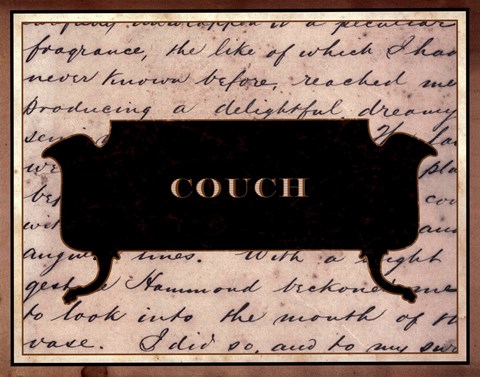 wrapped in a peculiar
fragrance, the like of which I ha
never known before, reached me
producing a delightful dreamy
sen
we pla
be co
wit an
angu lines. With a light
gest e Hammond beckone me
to look into the mouth of th
vase. I did so, and to my sur
COUCH